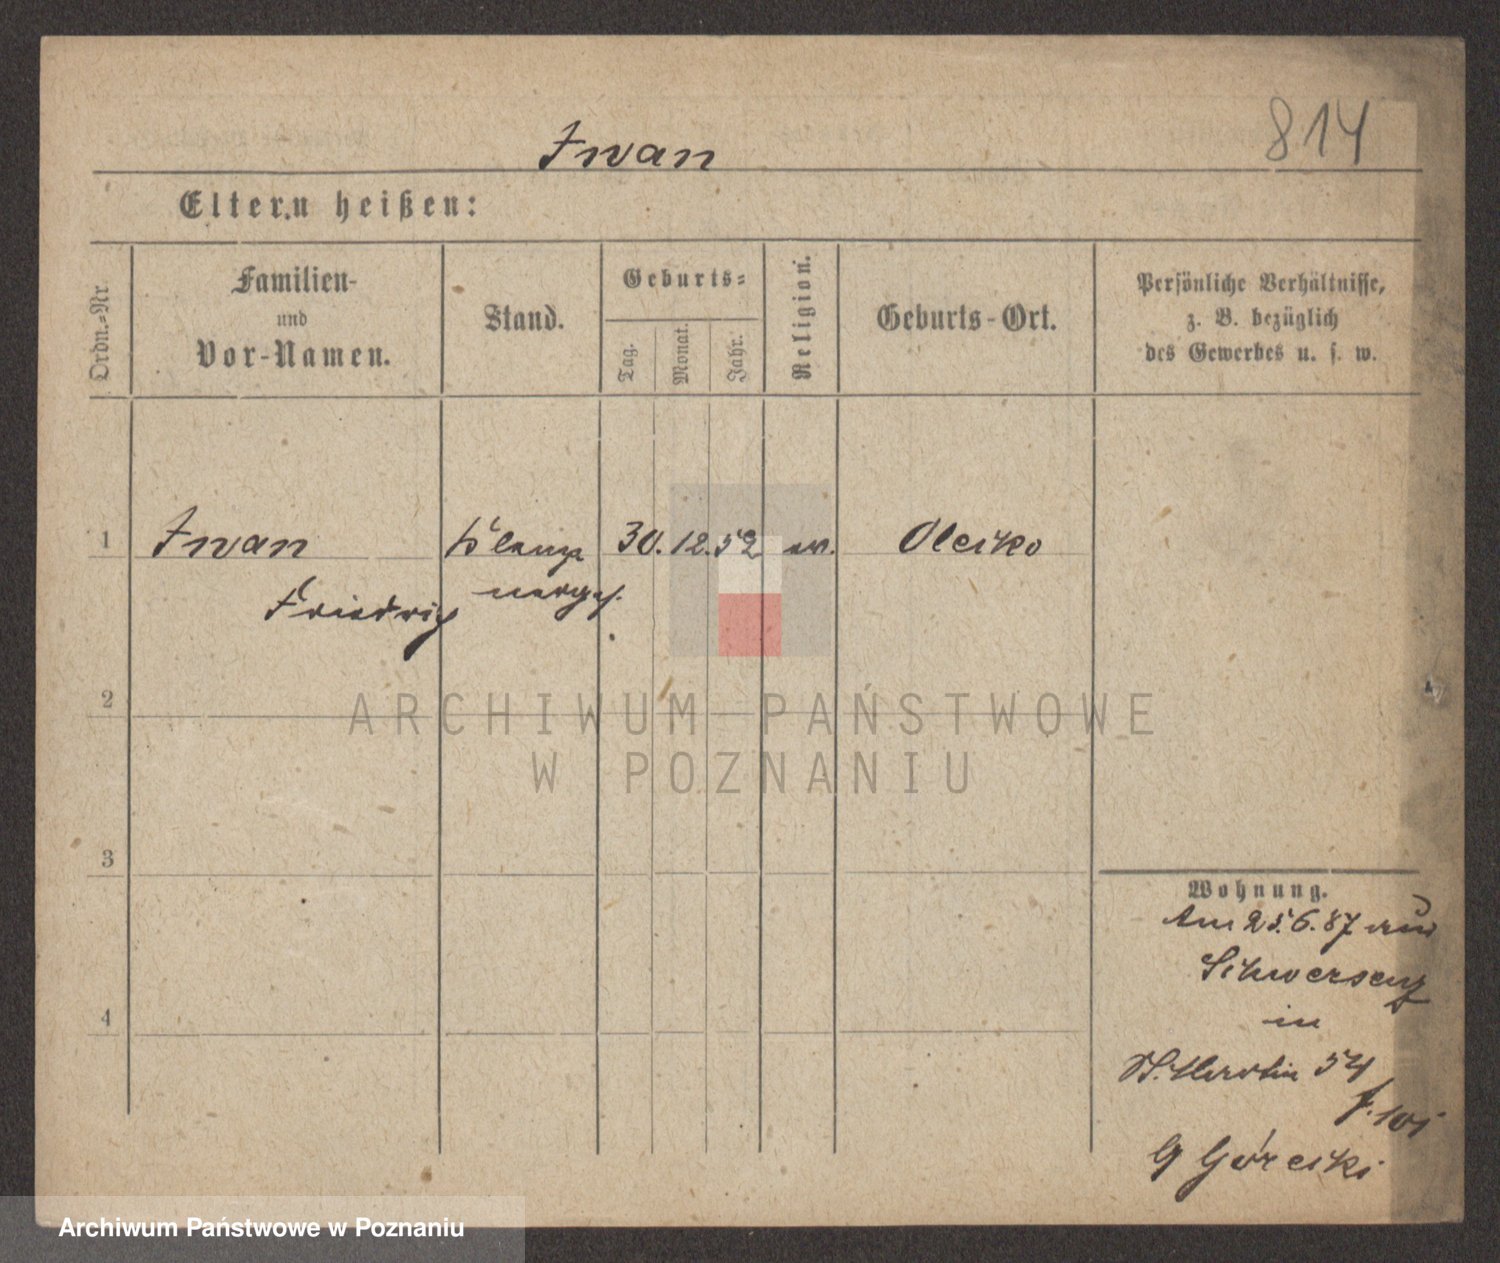 814
Iwan
Eltern heißen:
Ordn.=Nr.
Familien-
und
Vor-Namen.
Stand.
Geburts=
Tag.
Monat.
Jahr.
Religion.
Geburts-Ort.
Persönliche Verhältnisse,
z. B. bezüglich
des Gewerbes u. s. w.
1
Iwan
30. 12. 52
ev.
Olcisko
Friedrich
2
ARCHIWUM PAŃSTWOWE
W POZNANIU
3
4
Wohnung.
Am 25.6.87 aus
Schwersenz
in
St. Martin 54
G Górecki
Archiwum Państwowe w Poznaniu